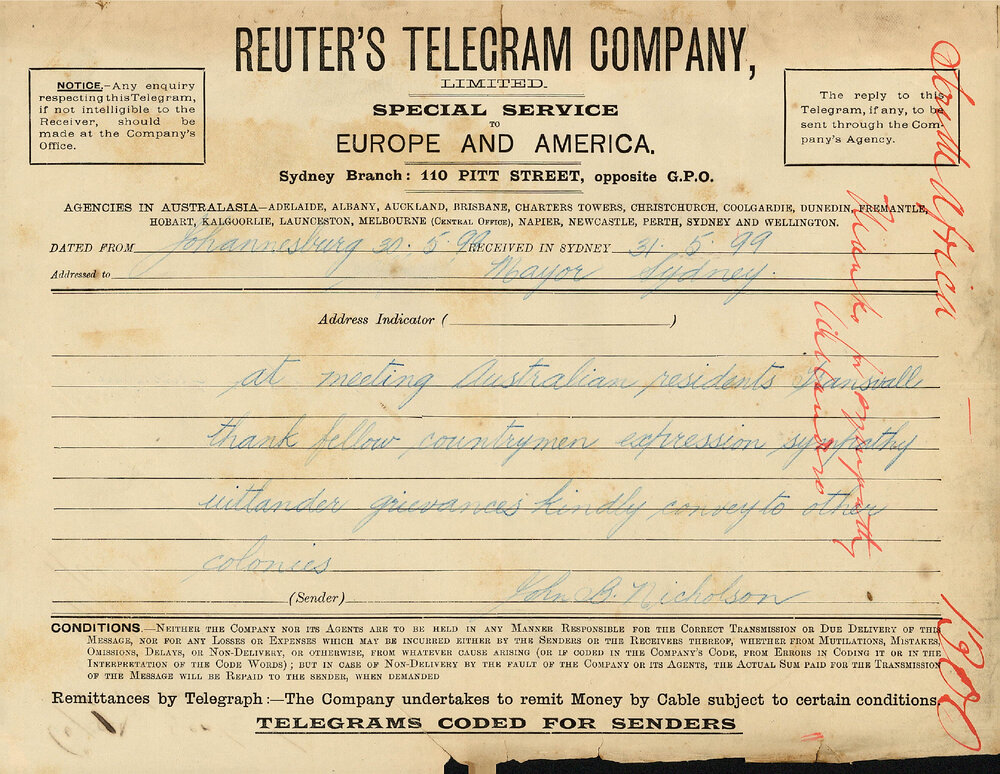 REUTER'S TELEGRAM COMPANY,
LIMITED.
SPECIAL SERVICE
TO
EUROPE AND AMERICA.
Sydney Branch: 110 PITT STREET, opposite G.P.O.
NOTICE.—Any enquiry
respecting this Telegram,
if not intelligible to the
Receiver, should be
made at the Company's
Office.
The reply to this
Telegram, if any, to be
sent through the Com-
pany's Agency.
AGENCIES IN AUSTRALASIA—ADELAIDE, ALBANY, AUCKLAND, BRISBANE, CHARTERS TOWERS, CHRISTCHURCH, COOLGARDIE, DUNEDIN, FREMANTLE,
HOBART, KALGOORLIE, LAUNCESTON, MELBOURNE (CENTRAL OFFICE), NAPIER, NEWCASTLE, PERTH, SYDNEY AND WELLINGTON.
DATED FROM Johannesburg 30. 5. 99 RECEIVED IN SYDNEY 31. 5. 99
Addressed to Mayor Sydney.
Address Indicator ( )
at meeting Australian residents Transvall
thank fellow countrymen expression sympathy
uitlander grievances kindly convey to other
colonies
(Sender) John B. Nicholson
CONDITIONS.—NEITHER THE COMPANY NOR ITS AGENTS ARE TO BE HELD IN ANY MANNER RESPONSIBLE FOR THE CORRECT TRANSMISSION OR DUE DELIVERY OF THIS
MESSAGE, NOR FOR ANY LOSSES OR EXPENSES WHICH MAY BE INCURRED EITHER BY THE SENDERS OR THE RECEIVERS THEREOF, WHETHER FROM MUTILATIONS, MISTAKES
OMISSIONS, DELAYS, OR NON-DELIVERY, OR OTHERWISE, FROM WHATEVER CAUSE ARISING (OR IF CODED IN THE COMPANY'S CODE, FROM ERRORS IN CODING IT OR IN THE
INTERPRETATION OF THE CODE WORDS); BUT IN CASE OF NON-DELIVERY BY THE FAULT OF THE COMPANY OR ITS AGENTS, THE ACTUAL SUM PAID FOR THE TRANSMISSION
OF THE MESSAGE WILL BE REPAID TO THE SENDER, WHEN DEMANDED
Remittances by Telegraph:—The Company undertakes to remit Money by Cable subject to certain conditions.
TELEGRAMS CODED FOR SENDERS
South Africa —
Thanks for sympathy
Uitlanders